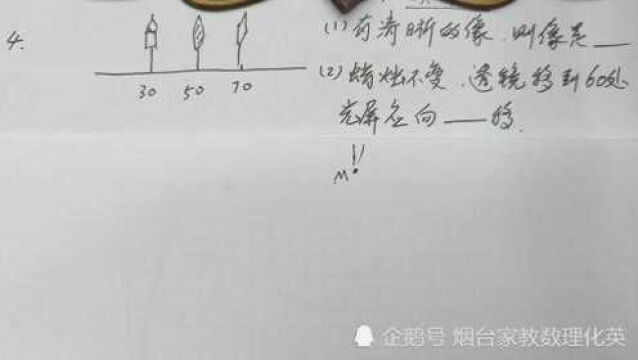 4.
30 50 70
(1) 有清晰的像,则像是___
(2) 蜡烛不变.透镜移到60处
光屏应向___移.
M
企鹅号 烟台家教数理化英